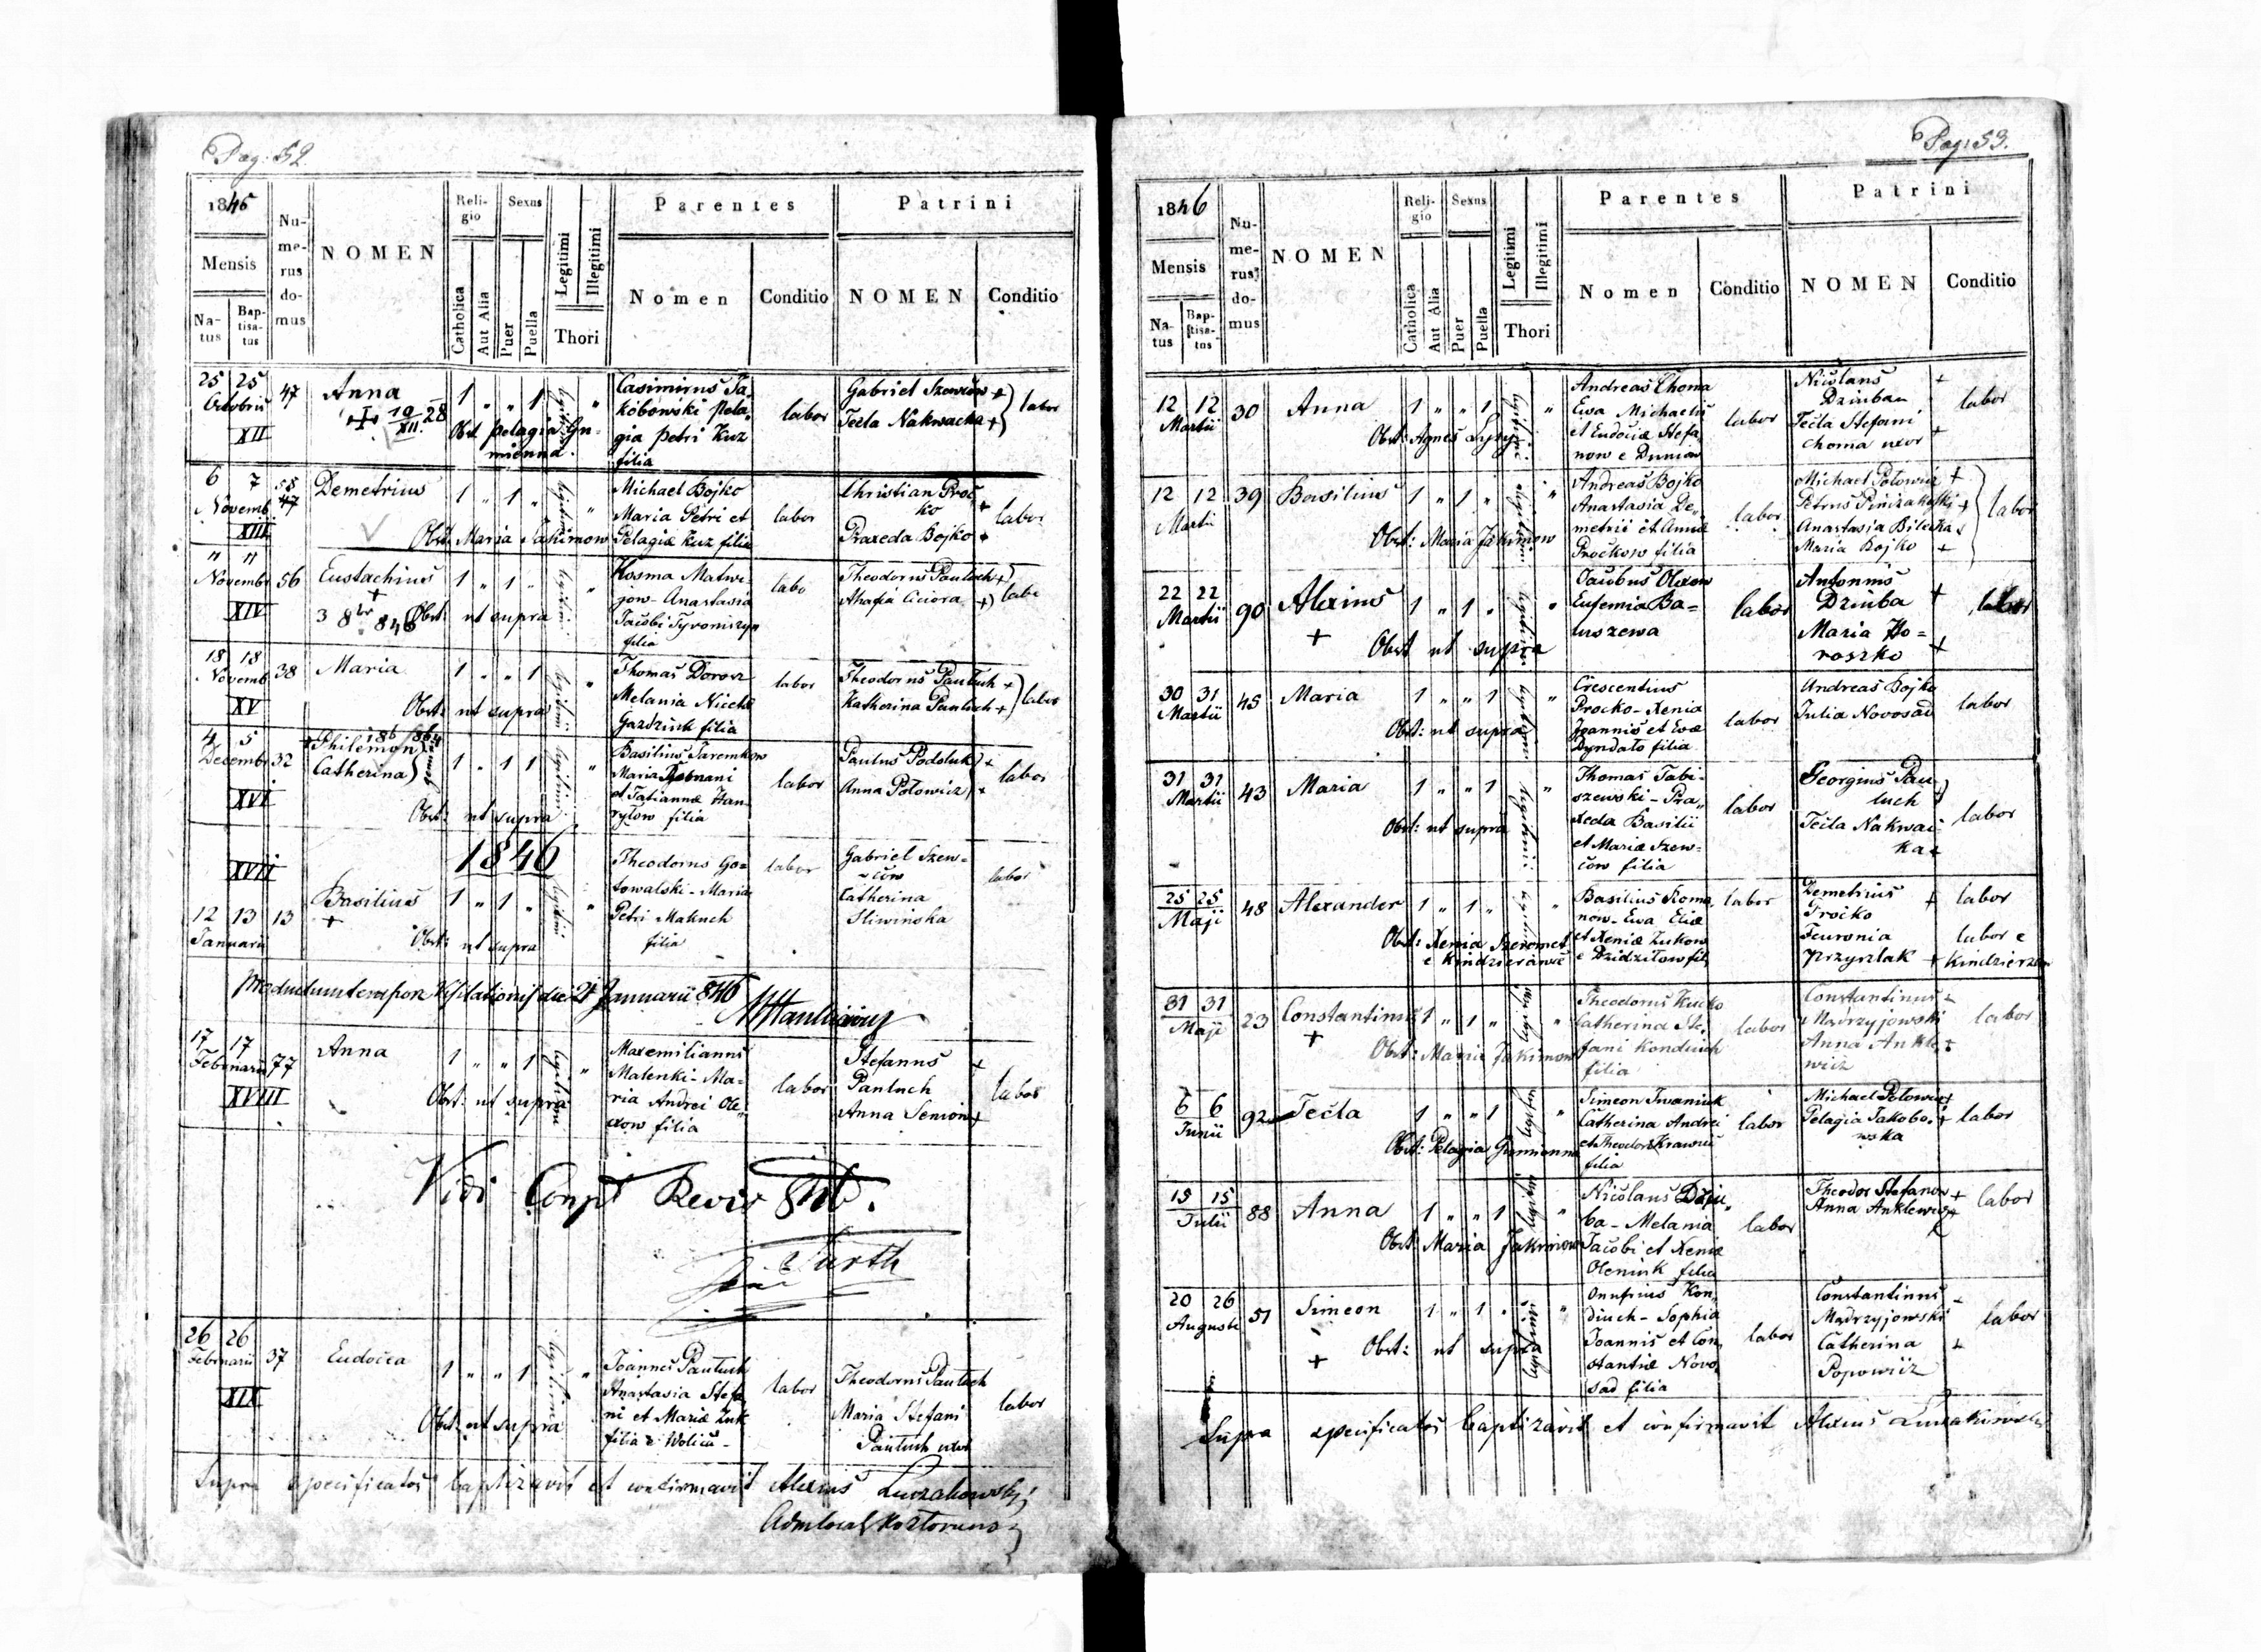 Pag: 52.
1845
Mensis
Natus
Baptisatus
Numerus domus
NOMEN
Religio
Catholica
Aut Alia
Sexus
Puer
Puella
Legitimi
Illegitimi
Thori
Parentes
Nomen
Conditio
Patrini
NOMEN
Conditio
25 25
Octobris
XII
47
Anna
19/XII 28
1 " " 1 "
Obst: Pelagia Gu-
mienna.
Casimirus Ja-
kobowski Pela-
gia Petri Kuz
filia
labor
Gabriel Szewców +
Tecla Nakwacka +
labor
6 7
Novemb
XIII
58
47
Demetrius
1 " 1 " "
Obst: Maria Jakimow
Michael Bojko
Maria Petri et
Pelagiæ Kuz filia
labor
Christian Proc
ko +
Praxeda Bojko +
labor
11 11
Novembr
XIV
56
Eustachius
+
3 8br 846
1 " 1 " "
Obst: ut supra
Kosma Matwi-
jow - Anastasia
Jacobi
filia
labo
Theodorus Pauluch +
Ahafia Ciciora +
labo
18 18
Novemb
XV
38
Maria
1 " " 1 "
Obst: ut supra
Thomas Dorosz
Melania Nicetæ
Gazdziuk filia
labor
Theodorus Pauluch +
Katherina Pauluch +
labor
4 5
Decembr
XVI
32
Philemon
Catherina
gemini
1 " 1 1 "
Obst: ut supra
Basilius Jaremkow
Maria Romani
et Tatiannæ Han-
rylow filia
labor
Paulus Podoluk +
Anna Polowicz +
labor
1846
XVII
12 13
Januarii
13
Basilius
+
1 " 1 " "
Obst: ut supra
Theodorus Go-
towalski - Maria
Petri Makuch
filia
labor
Gabriel Szew-
ców
Catherina
Sliwinska
labor
Productum tempore Visitationis die 21 Januarii 846
17 17
Februarii
XVIII
77
Anna
1 " " 1 "
Obst: ut supra
Maxemilianus
Malenki - Ma-
ria Andrei Ole-
xow filia
labor
Stefanus +
Pauluch
Anna Seniow +
labor
Vidi Conpt Revis 846.
26 26
Februarii
XIX
37
Eudocia
1 " " 1 "
Obst: ut supra
Joannes Pauluch
Anastasia Stefa
ni et Mariæ Zuk
filia e Wolica -
labor
Theodorus Pauluch
Maria Stefani
Pauluch uxor
labor
Supra specificatos baptizavit et confirmavit Alexius Luczakowskyj
Pag: 53.
1846
Mensis
Natus
Baptisatus
Numerus domus
NOMEN
Religio
Catholica
Aut Alia
Sexus
Puer
Puella
Legitimi
Illegitimi
Thori
Parentes
Nomen
Conditio
Patrini
NOMEN
Conditio
12 12
Martii
30
Anna
1 " " 1 "
Obst: Agnes Lysyj
Andreas Choma
Ewa Michaelis
et Eudociæ Stefa
now eDuniow
labor
Nicolaus +
Dziuban
Tecla Stefani
Choma uxor +
labor
12 12
Martii
39
Basilius
1 " 1 " "
Obst: Maria Jakimow
Andreas Bojko
Anastasia De-
metrii et Annæ
Prockow filia
labor
Michael Polowicz +
Anastasia Bilecka +
Maria Bojko +
labor
22 22
Martii
90
Alexius
+
1 " 1 " "
Obst ut supra
Jacobus Olexow
Eufemia Ba-
luszewa
labor
Antonius
Dziuba +
Maria Ho-
roszko +
labor
30 31
Martii
45
Maria
1 " " 1 "
Obst: ut supra
Crescentius
Procko - Xenia
Joannis et Ewæ
Dyndalo filia
labor
Andreas Bojko
Julia Novosad
labor
31 31
Martii
43
Maria
1 " " 1 "
Obst: ut supra
Thomas Tabi-
szewski - Pra-
xeda Basilii
et Mariæ Szew-
ców filia
labor
Georgius Pau
luch
Tecla Nakwac
ka +
labor
25 25
Maji
48
Alexander
1 " 1 " "
Obst: Xenia Szeremet
Basilius Roma
now - Ewa Eliæ
et Xeniæ Zukow
e Dzidzilow fil
labor
Demetrius +
Procko
Feuronia
Przyszlak +
labor
labor e
31 31
Maji
23
Constantinus
+
1 " 1 " "
Obst: Maria Jakimow
Theodorus Kucko
Catherina Ste-
fani Konduich
filia
labor
Constantinus +
Mądrzyjowski
Anna Ankle +
wicz
labor
6 6
Junii
92
Tecla
1 " " 1 "
Obst: Pelagia Gumienna
Simeon Iwaniuk
Catherina Andrei
et Theodoræ Krawciw
filia
labor
Michael Polowicz +
Pelagia Jakobo- +
wska
labor
15 15
Julii
88
Anna
1 " " 1 "
Obst: Maria Jakimow
Nicolaus Dziu-
ba - Melania
Jacobi et Xeniæ
Oleniuk filia
labor
Theodor Stefanow +
Anna Anklewicz +
labor
20 26
Augusti
51
Simeon
+
1 " 1 " "
Obst: ut supra
Onufrius Kon-
diuch - Sophia
Joannis et Con-
stantiæ Novo
sad filia
labor
Constantinus
Mądrzyjowski
Catherina +
Popowicz
labor
Supra specificatos baptizavit et confirmavit Alexius Luczakowskyj